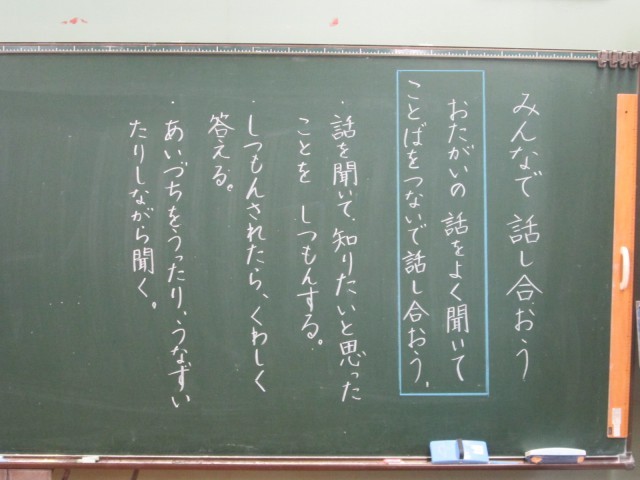 みんなで 話し合おう
おたがいの 話をよく聞いて
ことばをつないで話し合おう。
・話を聞いて、知りたいと思った
ことを しつもんする。
・しつもんされたら、くわしく
答える。
・あいづちをうったり、うなずい
たりしながら聞く。